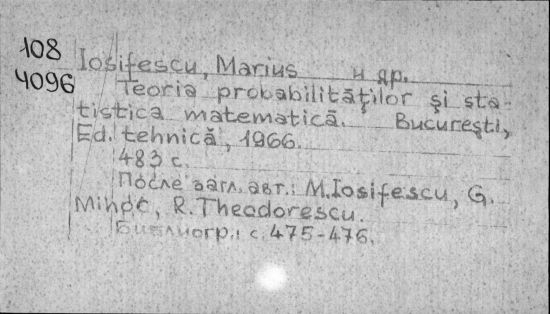 108
4096
Iosifescu, Marius и др.
Teoria probabilităţilor şi sta-
tistica matematică. Bucureşti,
Ed. tehnică, 1966.
483 с.
После загл. авт.: M. Iosifescu, G.
Mihoc, R. Theodorescu.
Библиогр.: с. 475-476.